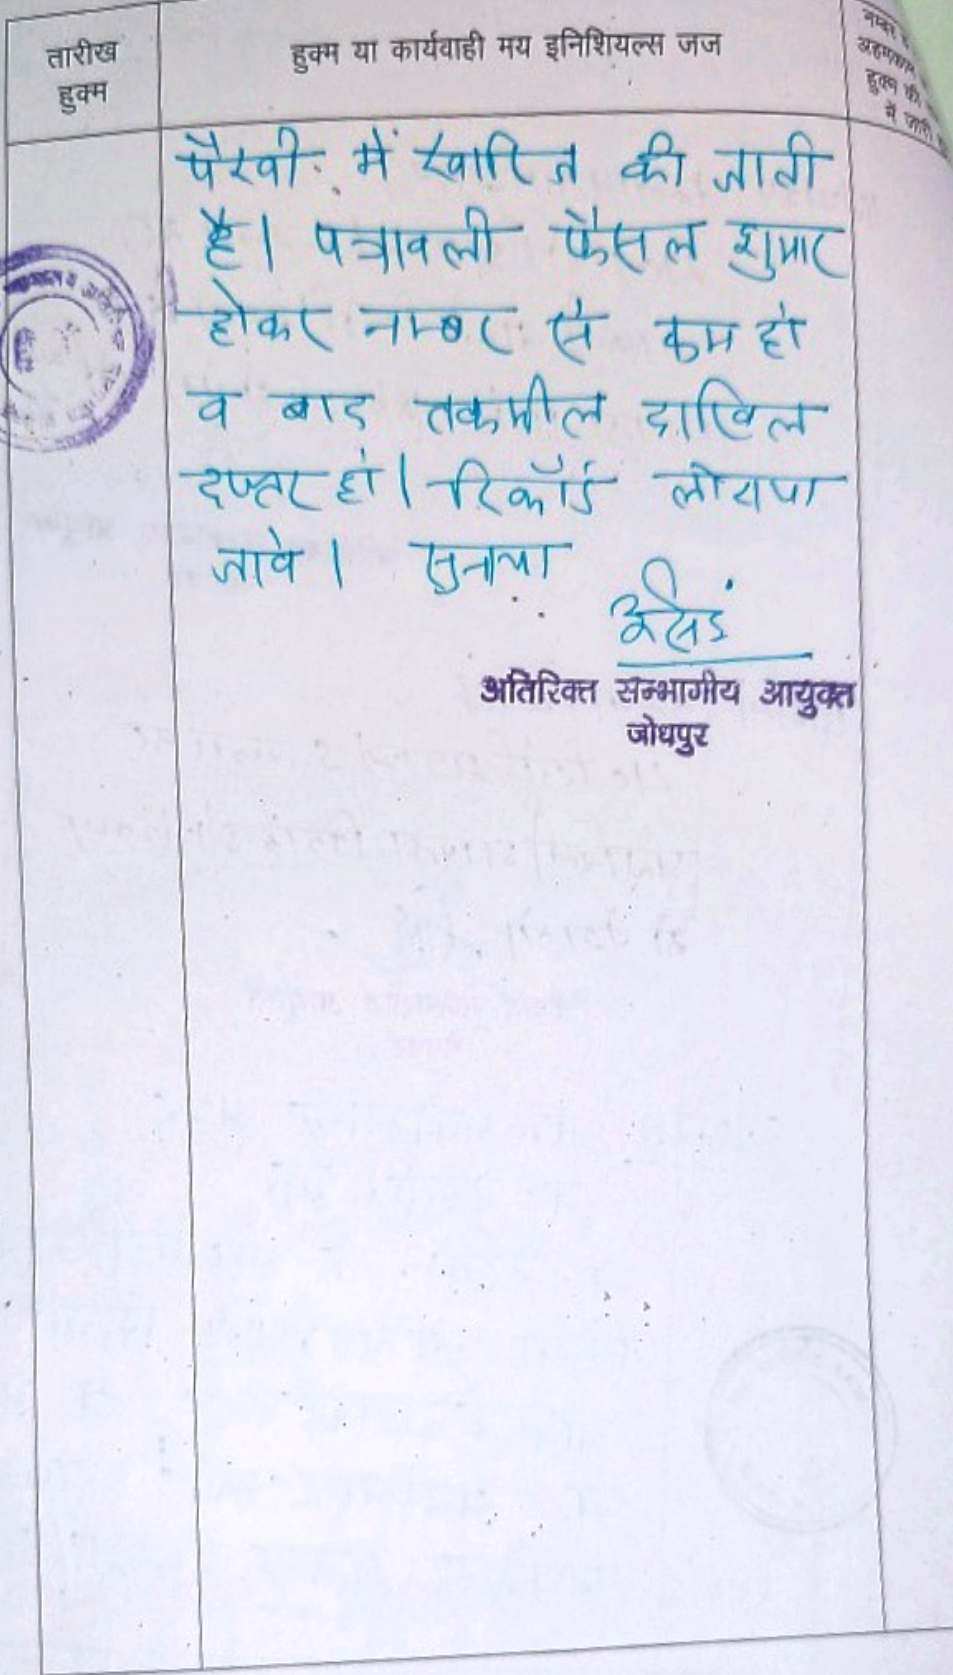 तारीख
हुक्म
हुक्म या कार्यवाही मय इनिशियल्स जज
हुक्म की
में जारी
पैरवी में खारिज की जाती
है। पत्रावली फैसल शुमार
होकर नम्बर से कम हो
व बाद तकमील दाखिल
दफ्तर हो। रिकॉर्ड लोटाया
जावे। सुनाया
अतिरिक्त सम्भागीय आयुक्त
जोधपुर